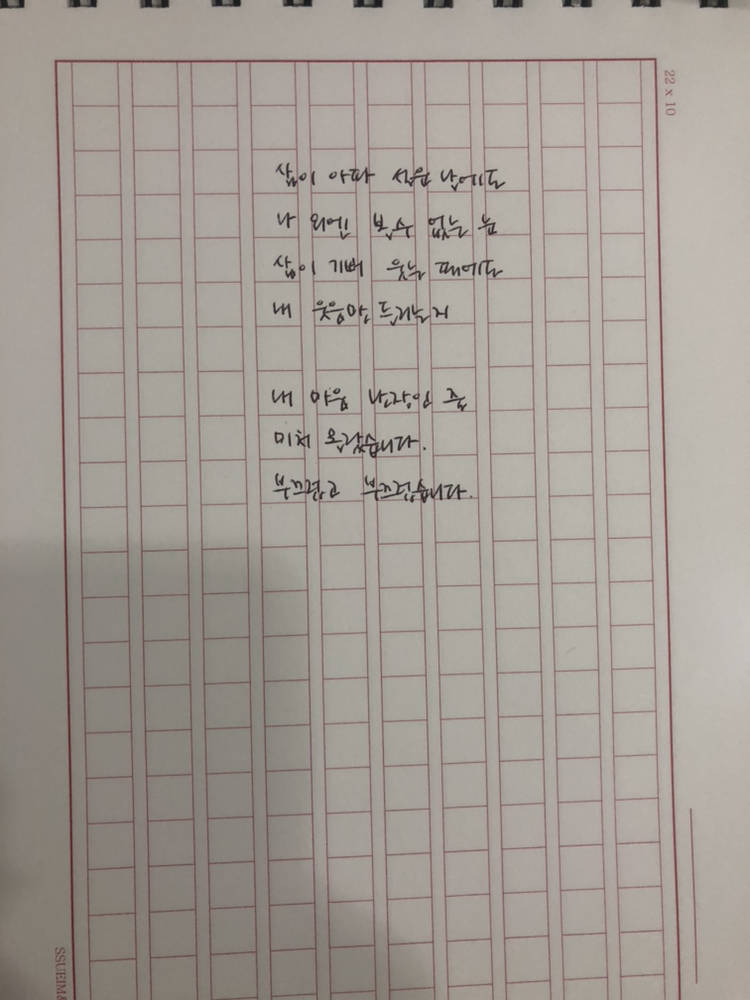 삶이 아파 설운 날에도
나 외엔 볼 수 없는 눈
삶이 기뻐 웃는 때에도
내 웃음만 들리는 귀
내 마음 난장인 줄
미처 몰랐습니다.
부끄럽고 부끄럽습니다.
22 x 10